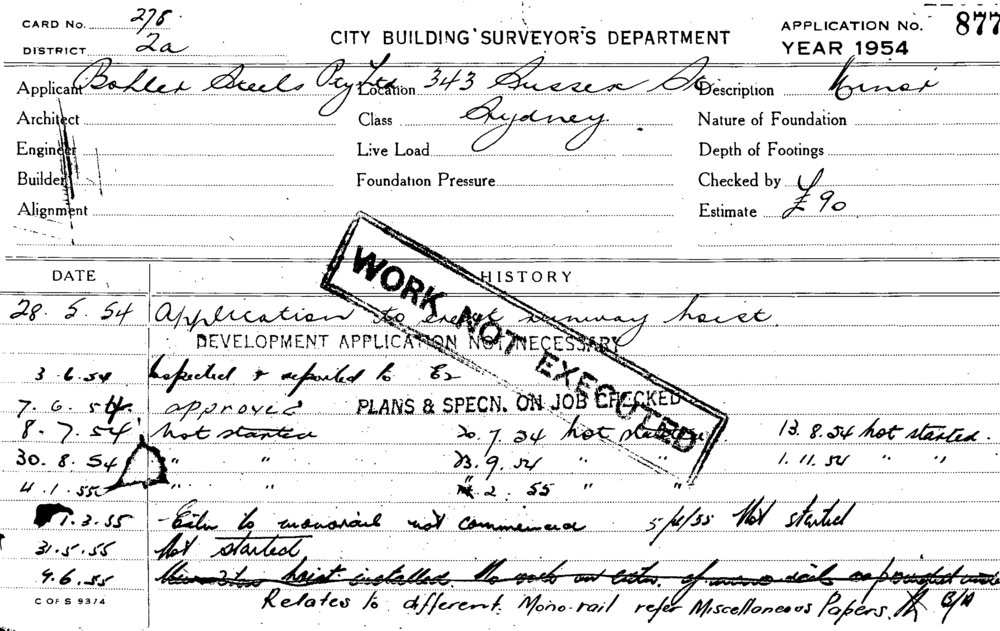 CARD No. 276
DISTRICT 2a
CITY BUILDING SURVEYOR'S DEPARTMENT
APPLICATION No. 877
YEAR 1954
Applicant Bohler Steels Pty Ltd Location 343 Sussex St Description Minor
Architect Class Sydney Nature of Foundation
Engineer Live Load Depth of Footings
Builder Foundation Pressure Checked by
Alignment Estimate £90
WORK NOT EXECUTED
DATE HISTORY
28. 5. 54 Application to erect runway hoist.
DEVELOPMENT APPLICATION NOT NECESSARY
3. 6. 54 Inspected & reported to
7. 6. 54. approved PLANS & SPECN. ON JOB CHECKED
8. 7. 54 Not started 20. 7. 54 Not started 13. 8. 54 Not started.
30. 8. 54 " " 23. 9. 54 " 1. 11. 54 " "
4. 1. 55 " " 2. 55 " "
1. 3. 55 Extn to monorail not commenced 5/4/55 Not started
31. 5. 55 Not started
9. 6. 55 hoist installed. No work on extn. of mono rail
Relates to different Mono-rail refer Miscellaneous Papers.
C OF S 9374